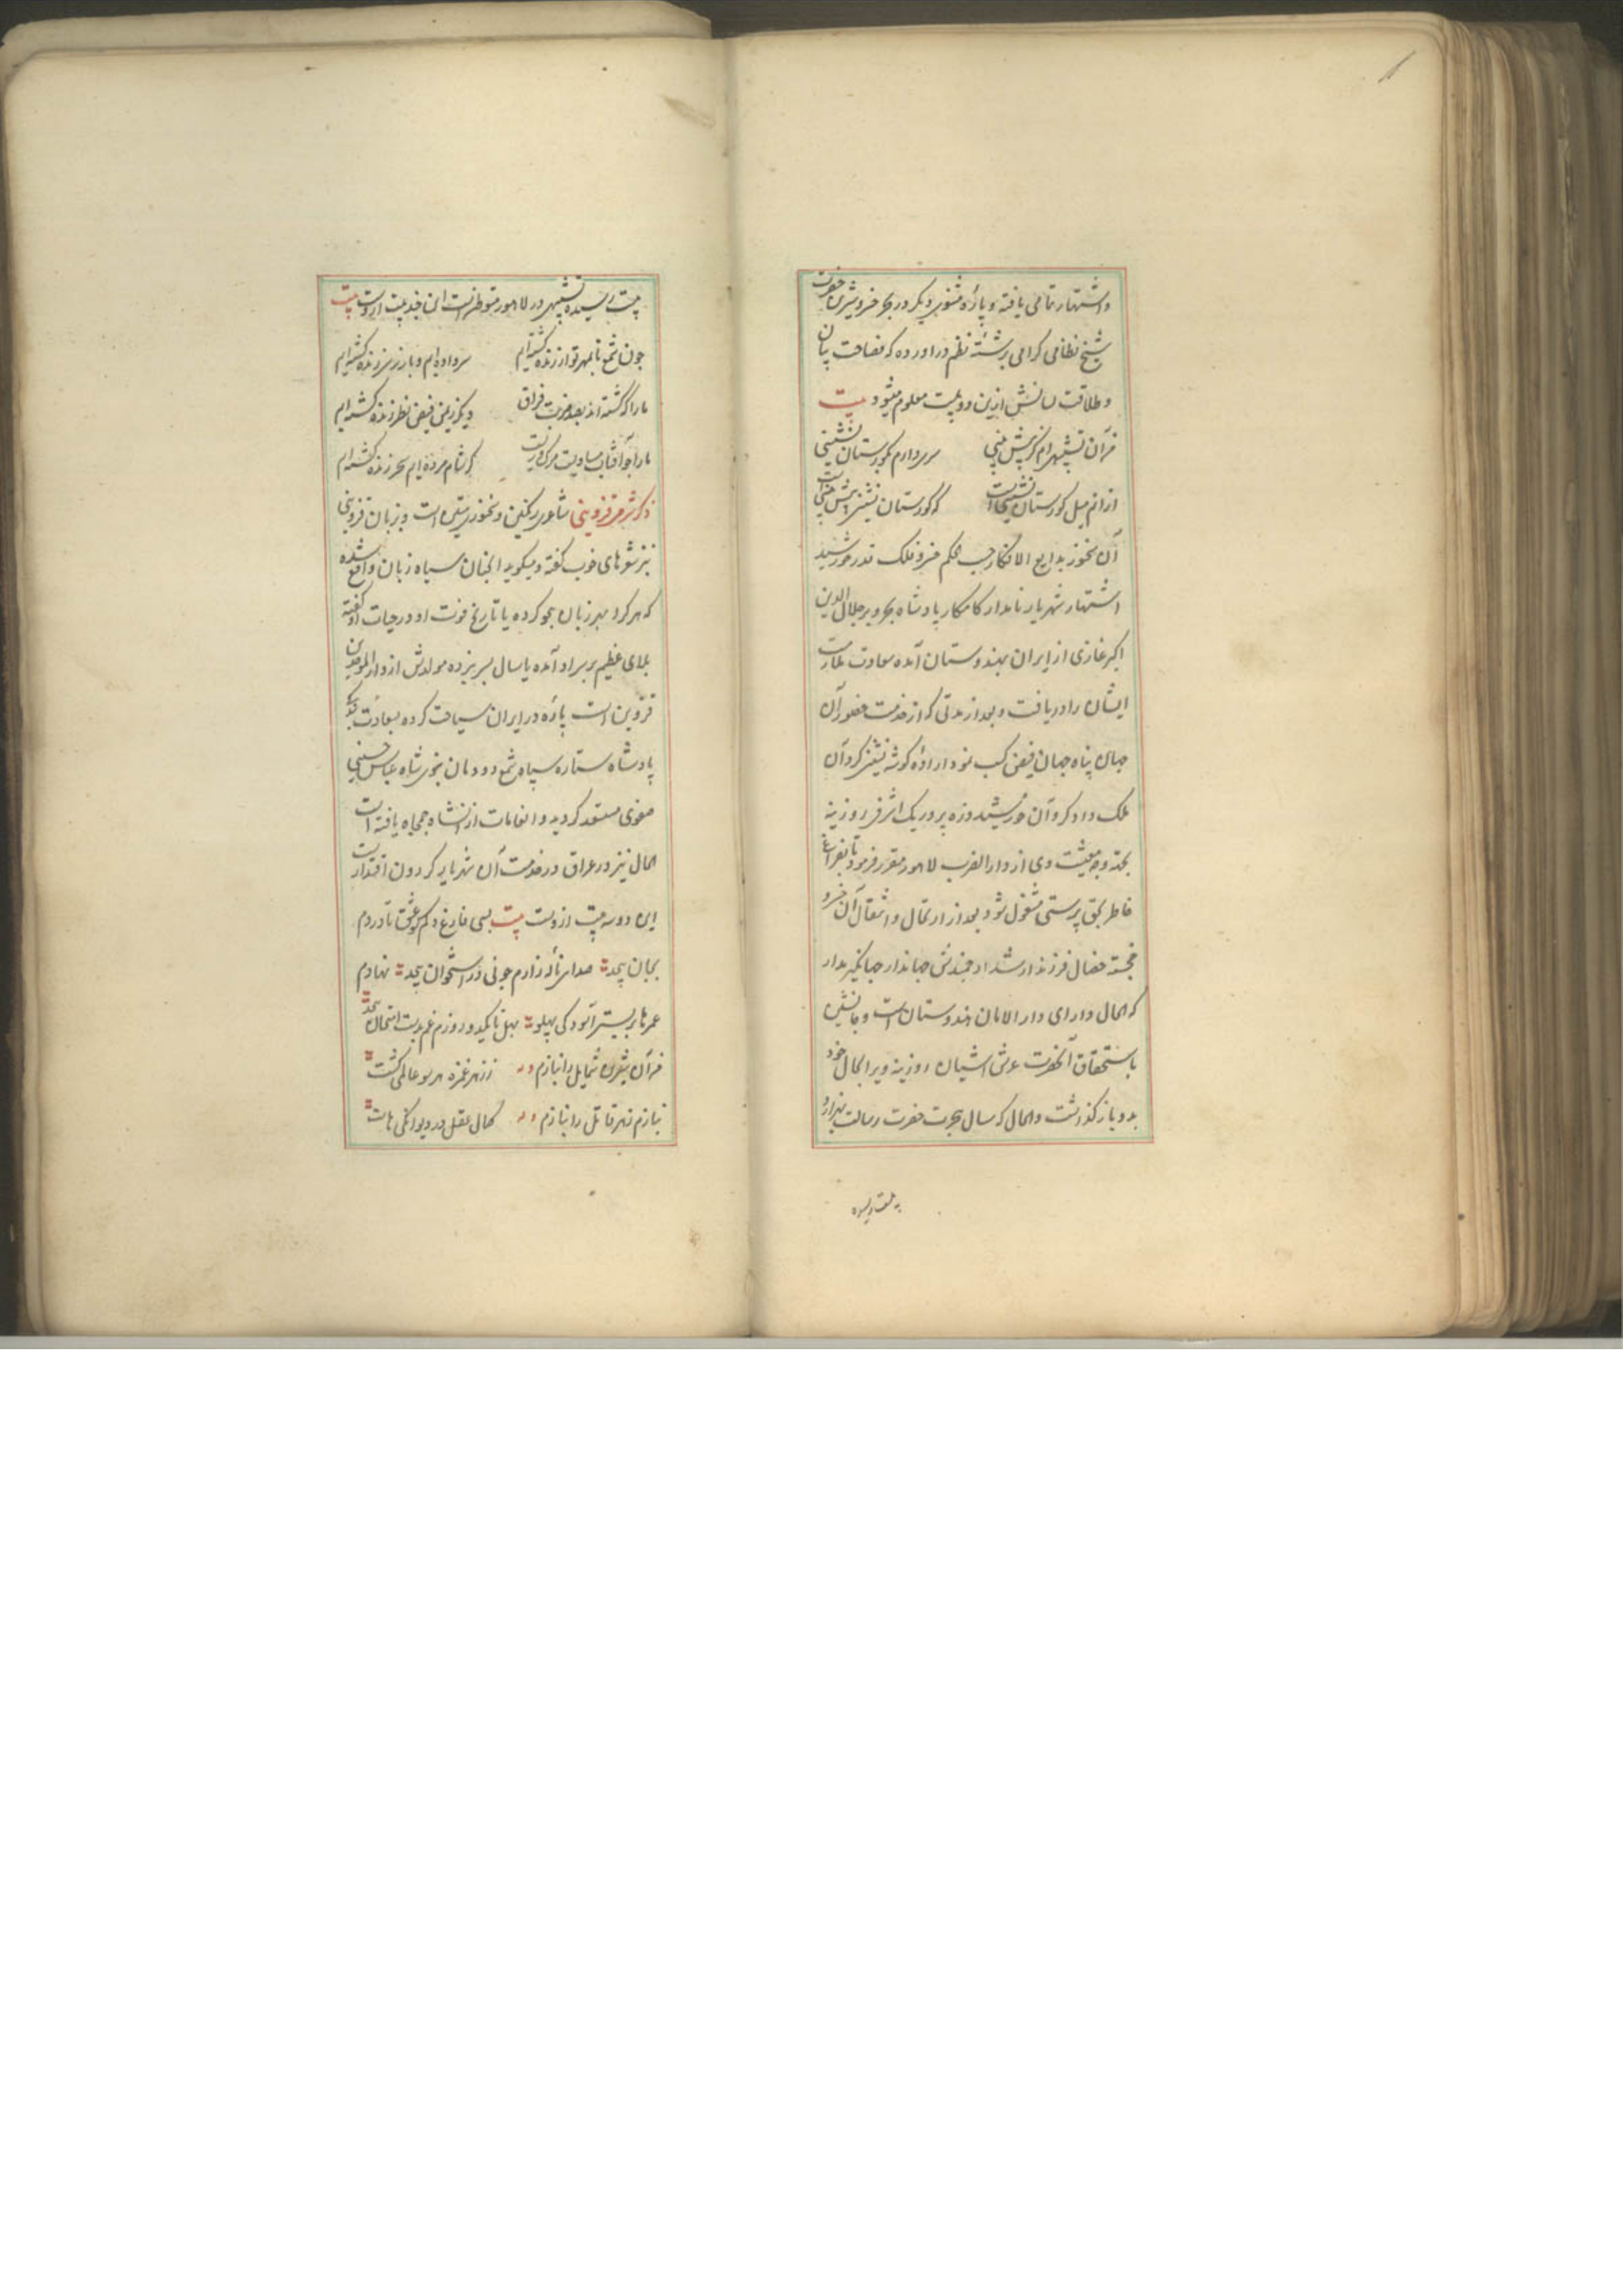 واشتهار تمامی یافته و پارهٔ مثنوی دیگر در بحر خسرو شیرین حضرت
شیخ نظامی گرامی برشتهٔ نظم دراورده که فصاحت بیان
و طلاقت لسانش ازین دو بیت معلوم میشود بیت
سری دارم بکورستان نشینی
ازانم میل کورستان نشینی است که کورستان نشین
آن سخنور بدایع الافکار حسب الحکم خسرو فلک قدر خورشید
اشتهار شهریار نامدار کامکار پادشاه بحر و بر جلال الدین
اکبر غازی از ایران بهندوستان آمده سعادت ملازمت
ایشان را دریافت و بعد از مدتی که از خدمت حضور آن
جهان پناه جهان فیض کسب نمود ارادهٔ کوشه نشینی کرد آن
ملک داد کر و آن خورشید ذره پرور یک اشرفی روزینه
بجهة وجه معیشت وی از دارالضرب لاهور مقرر فرمود تا بفراغ
خاطر بحق پرستی مشغول شود بعد از ارتحال و انتقال آن خسرو
خجسته خصال فرزند ارشد ارجمندش جهاندار جهانکیر مدار
که الحال دارای دارالامان هندوستان است و جانشین
باستحقاق آنحضرت عرش آشیان روزینه ویرا بحال خود
بدو باز کذاشت و الحال که سال هجرت حضرت رسالت بهزار و
بیست رسیده
بیست رسیده تشبیهی در لاهور متوطن است این چند بیت ازوست بیت
چون شمع تا بمهر تو از زنده کشته ایم سر داده ایم و باز ز سر زنده کشته ایم
ما را که کشته اند بصد ضربت فراق دیکر زیمن فیض نظر زنده کشته ایم
کر شام مرده ایم سحر زنده کشته ایم
ذکر شرمی قزوینی شاعری رنکین و سخنوری متین است و بزبان قزوینی
نیز شعرهای خوب کفته و میکوید انچنان سیاه زبان واقع شده
که هرکرا بهر زبان هجو کرده یا تاریخ فوت او در حیات او کفته
بلای عظیم بر سر او آمده یا سال بسر نبرده مولدش از دارالموحدین
قزوین است پارهٔ در ایران سیاحت کرده بسعادت بندکی
پادشاه ستاره سپاه شمع دودمان نبوی شاه عباس حسینی
صفوی مستعد کردید و انعامات از آنشاه جمجاه یافته است
الحال نیز در عراق در خدمت آن شهریار کردون اقتدار است
این دو سه بیت ازوست بیت بسی فارغ دلم کو عشق تا دردم
بجان پیچد صدای نالهٔ زارم چو نی در استخوان پیچد نهادم
عمرها بر بستر آسودکی پهلو بهل تا یکدو روزم غم بدست امتحان پیچد
من آن شیرین شمایل را بنازم وله ز زهر غمزه هر سو عالمی کشت
بنازم زهر قاتل را بنازم وله کمال عقل در دیوانکی هاست